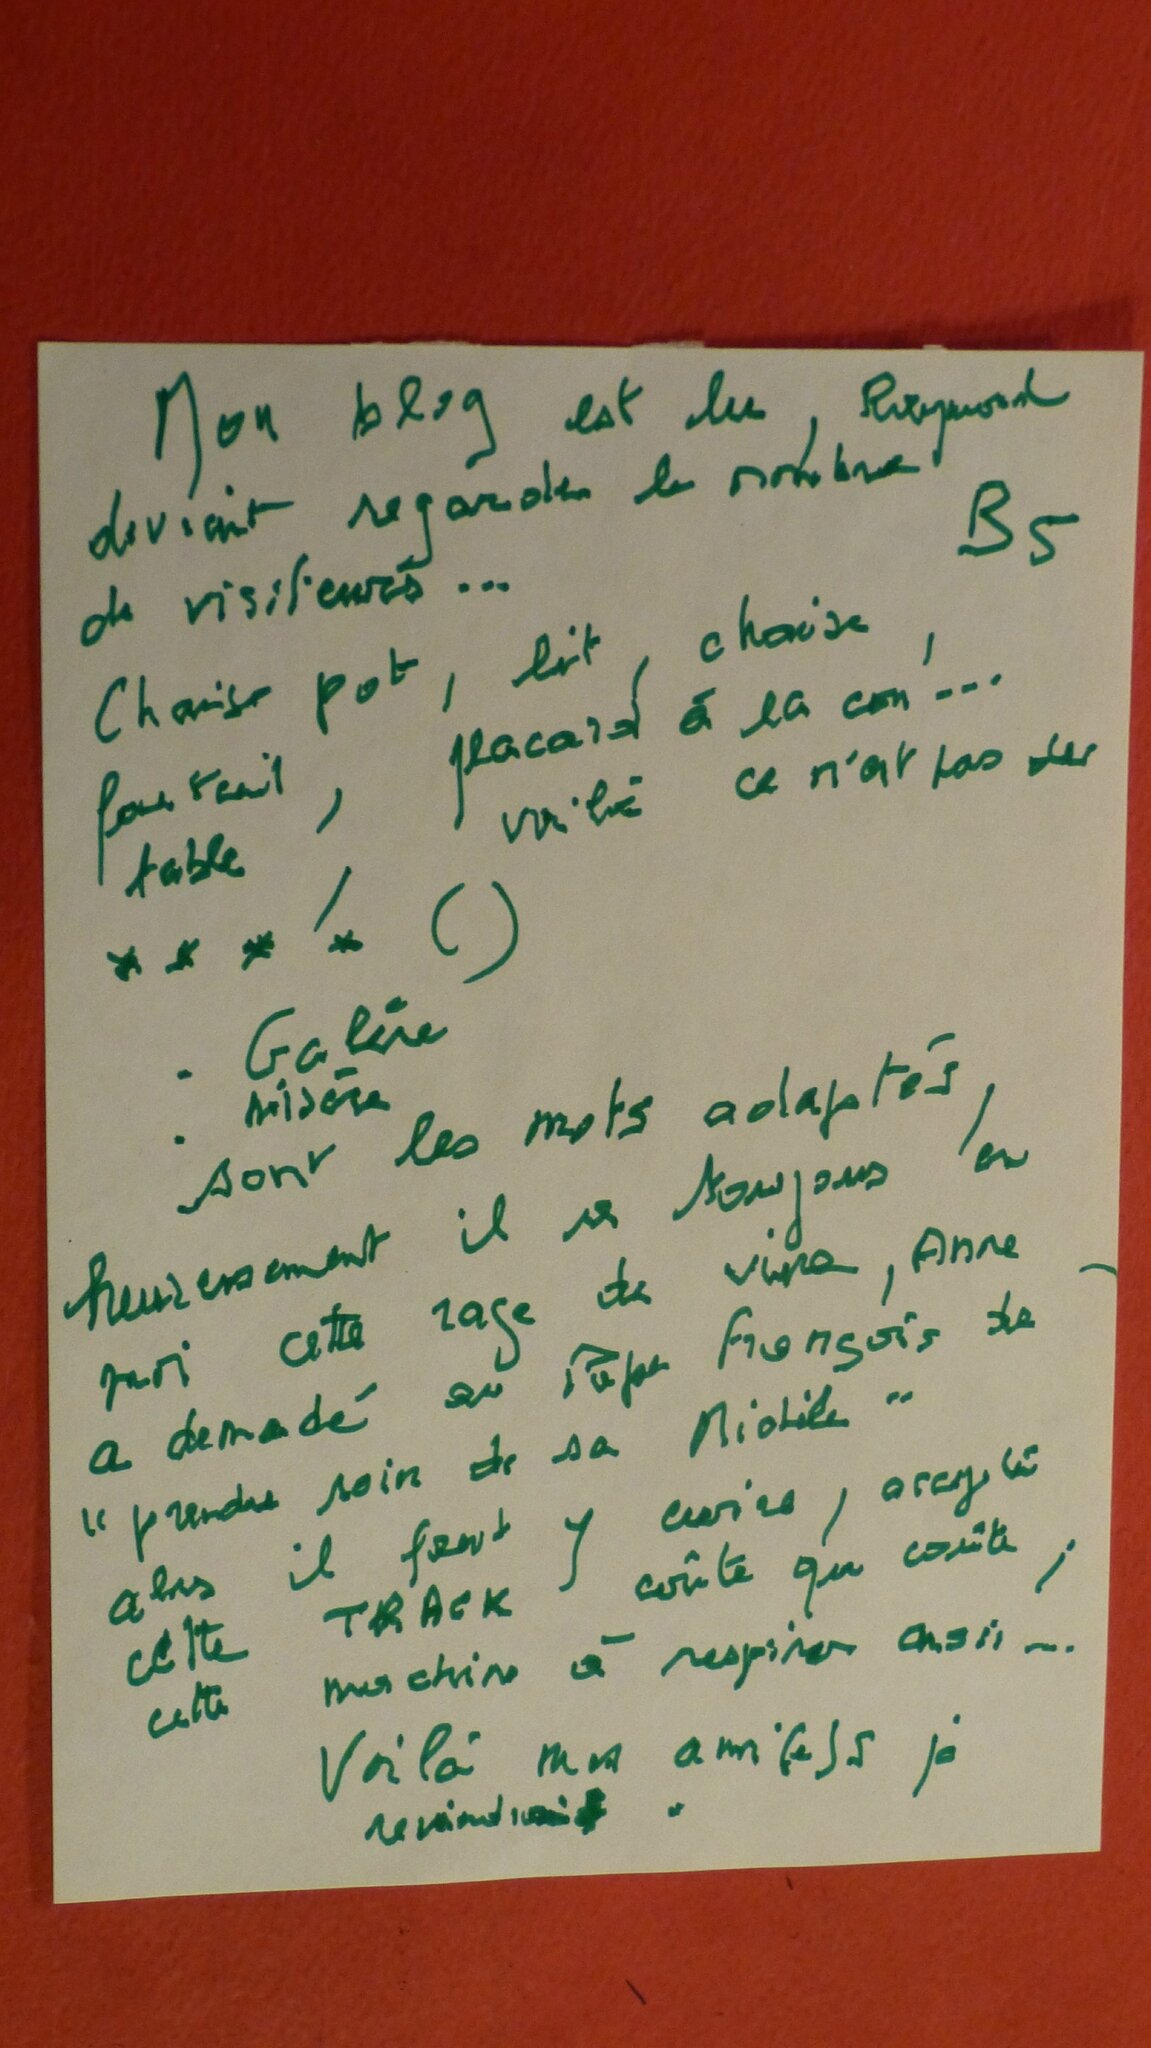 Mon blog est lu, Raymond
devient regarder le nombre
B5
de visiteurs...
Chaise pot, lit, chaise,
fauteuil, placard à la con...
table, voilà ce n'est pas des
* * * * ( )
. Galère
. misère
sont les mots adaptés,
heureusement il y a toujours en
moi cette rage de vivre, Anne
a demandé au Pape François de
"prendre soin de sa Michèle"
alors il faut y croire, accepter
cette TRACK coûte que coûte,
cette machine à respirer aussi...
Voilà mes ami(e)s je
reviendrai.